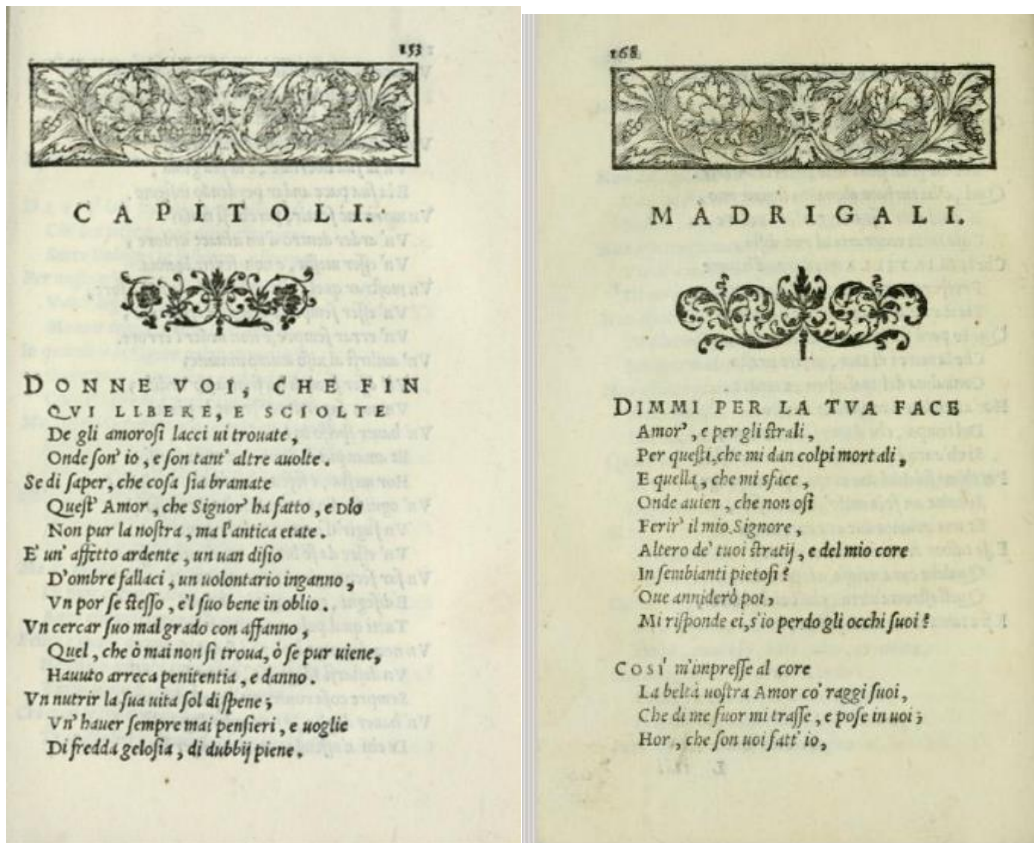 153
CAPITOLI.
DONNE VOI, CHE FIN
QVI LIBERE, E SCIOLTE
De gli amorosi lacci ui trouate,
Onde son' io, e son tant' altre auolte.
Se di saper, che cosa sia bramate
Quest' Amor, che Signor' ha fatto, e DIO
Non pur la nostra, ma l'antica etate.
E' un' affetto ardente, un uan disio
D'ombre fallaci, un uolontario inganno,
Vn por se stesso, e'l suo bene in oblio.
Vn cercar suo mal grado con affanno,
Quel, che ò mai non si troua, ò se pur uiene,
Hauuto arreca penitentia, e danno.
Vn nutrir la sua uita sol di spene;
Vn' hauer sempre mai pensieri, e uoglie
Di fredda gelosia, di dubbij piene.
168
MADRIGALI.
DIMMI PER LA TVA FACE
Amor', e per gli strali,
Per questi, che mi dan colpi mortali,
E quella, che mi sface,
Onde auien, che non osi
Ferir' il mio Signore,
Altero de' tuoi stratij, e del mio core
In sembianti pietosi?
Oue anniderò poi,
Mi risponde ei, s'io perdo gli occhi suoi?
COSI' m'impresse al core
La beltà uostra Amor co' raggi suoi,
Che di me fuor mi trasse, e pose in uoi;
Hor, che son uoi fatt' io,